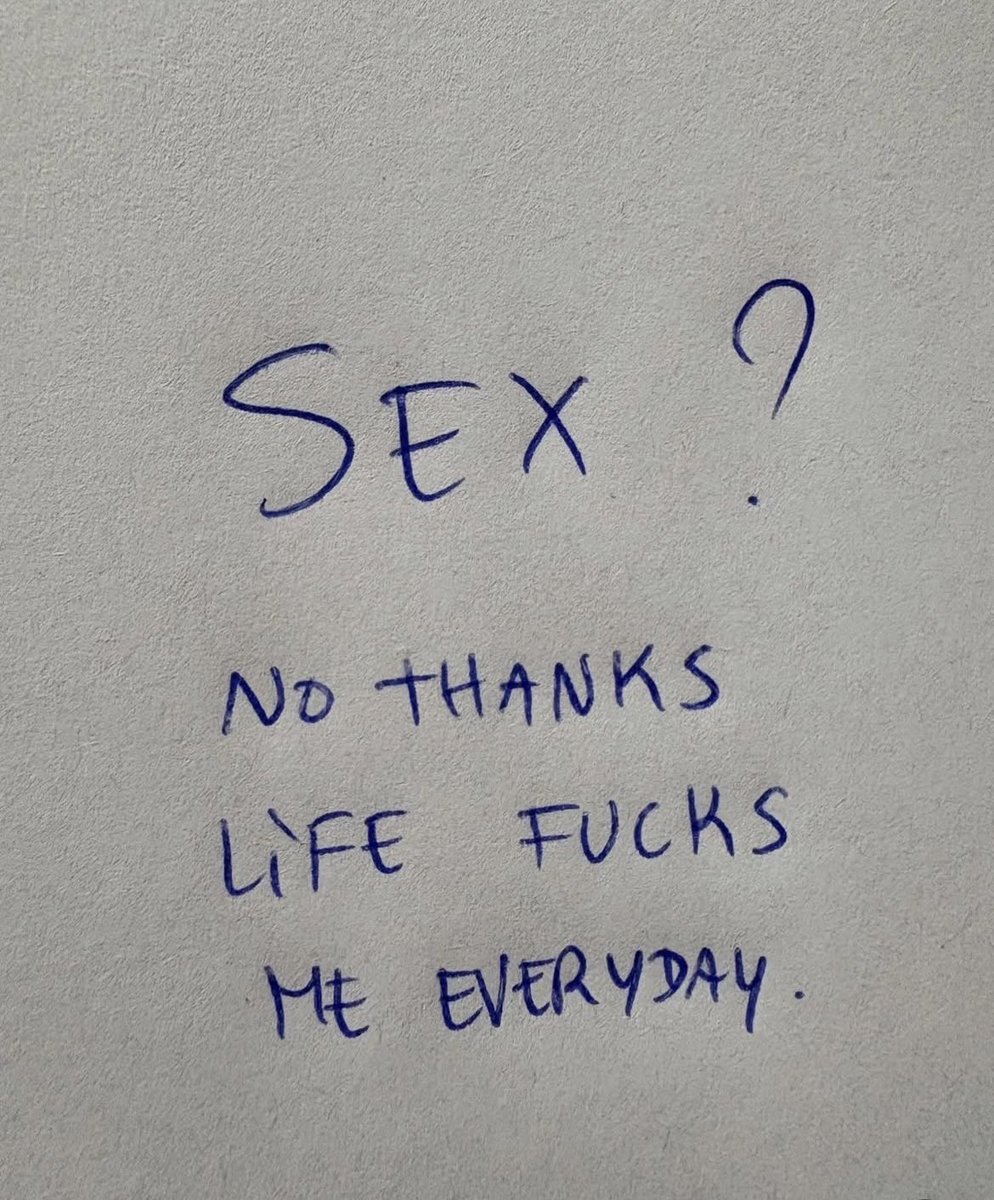 SEX ?
NO THANKS
LiFE FUCKS
ME EVERYDAY.